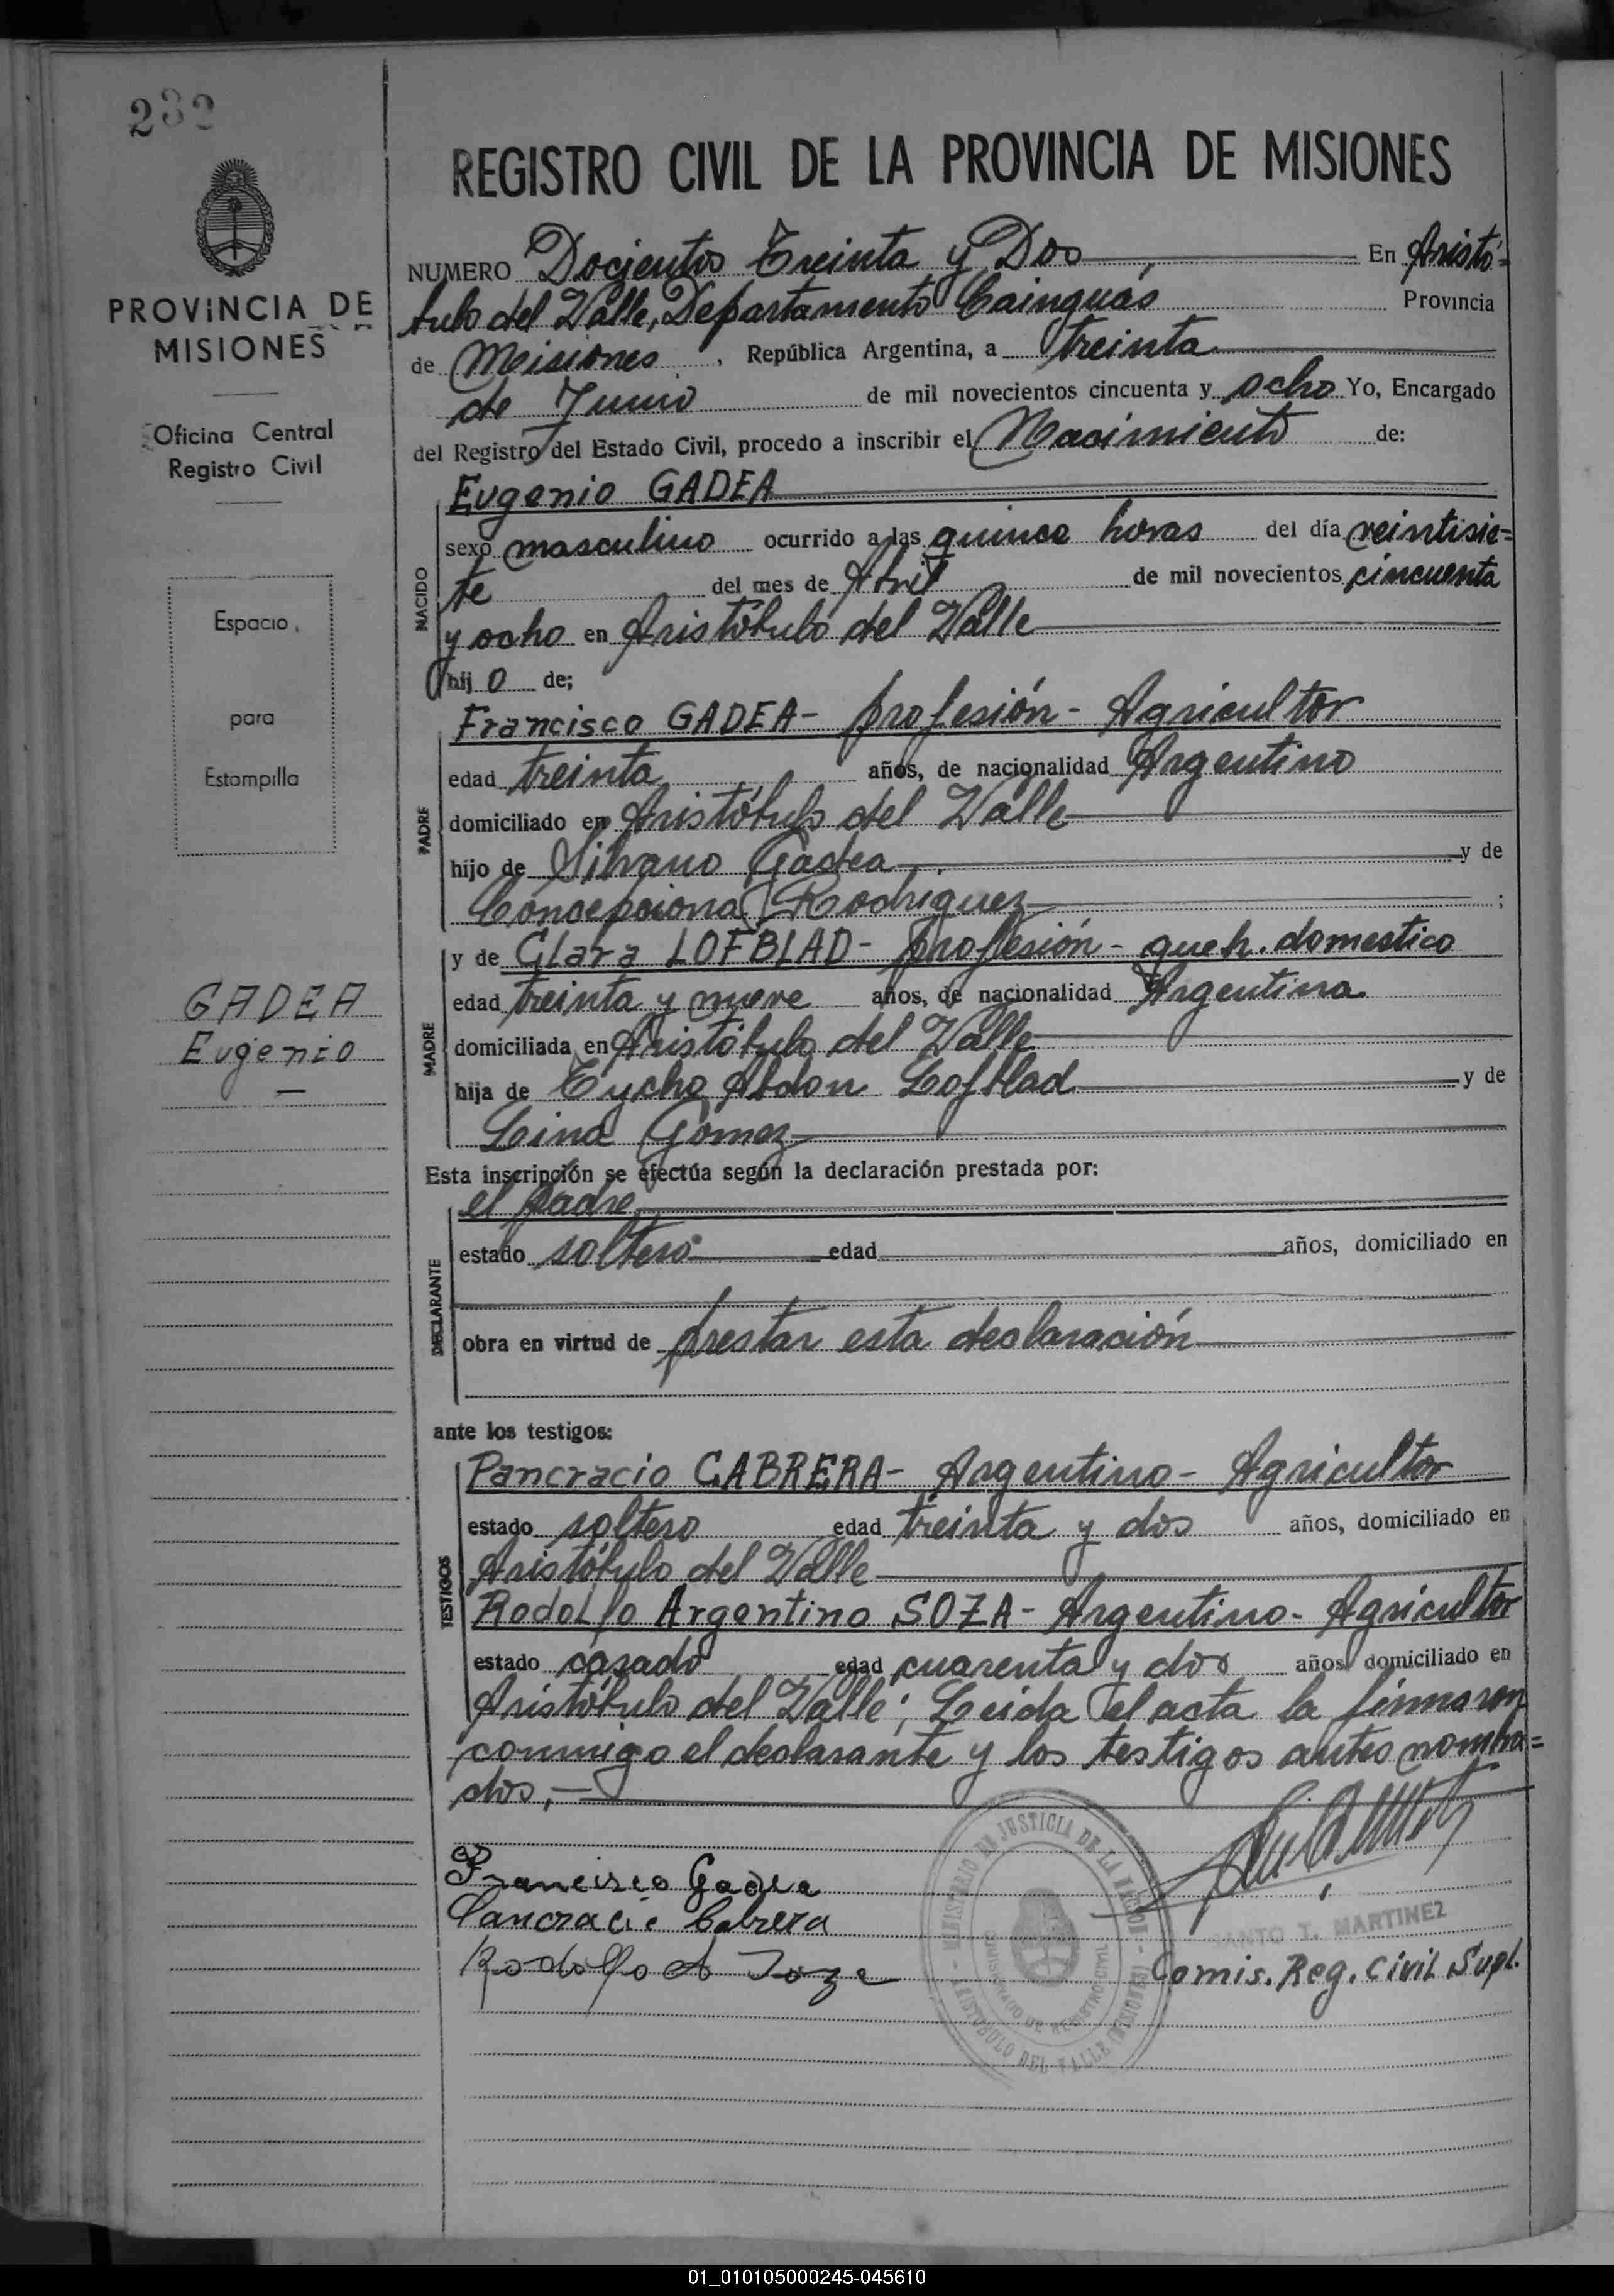 232
PROVINCIA DE
MISIONES
Oficina Central
Registro Civil
Espacio
para
Estampilla
GADEA
Eugenio
REGISTRO CIVIL DE LA PROVINCIA DE MISIONES
NUMERO Docientos Treinta y Dos En Aristó=
bulo del Valle, Departamento Cainguás Provincia
de Misiones, República Argentina, a treinta
de Junio de mil novecientos cincuenta y ocho Yo, Encargado
del Registro del Estado Civil, procedo a inscribir el Nacimiento de:
NACIDO
Eugenio GADEA
sexo masculino ocurrido a las quince horas del día veintisie=
te del mes de Abril de mil novecientos cincuenta
y ocho en Aristóbulo del Valle
hij o de;
PADRE
Francisco GADEA- profesión- Agricultor
edad treinta años, de nacionalidad Argentino
domiciliado en Aristóbulo del Valle
hijo de Silvano Gadea y de
Concepciona Rodriguez ;
MADRE
y de Clara LOFBLAD- profesión- queh. domestico
edad treinta y nueve años, de nacionalidad Argentina
domiciliada en Aristóbulo del Valle
hija de Tycho Abdon Lofblad y de
Lina Gomez
Esta inscripción se efectúa según la declaración prestada por:
DECLARANTE
el padre
estado soltero edad años, domiciliado en
obra en virtud de prestar esta declaración
ante los testigos:
TESTIGOS
Pancracio CABRERA- Argentino- Agricultor
estado soltero edad treinta y dos años, domiciliado en
Aristóbulo del Valle
Rodolfo Argentino SOZA- Argentino- Agricultor
estado casado edad cuarenta y dos años domiciliado en
Aristóbulo del Valle; Leida el acta la firmaron
conmigo el declarante y los testigos antes nombra=
dos,-
Francisco Gadea
Pancracio Cabrera
Rodolfo A Soza
MINISTERIO DE JUSTICIA DE LA NACION
ARISTOBULO DEL VALLE (MISIONES)
T. MARTINEZ
Comis. Reg. Civil Supl.
01_010105000245-045610